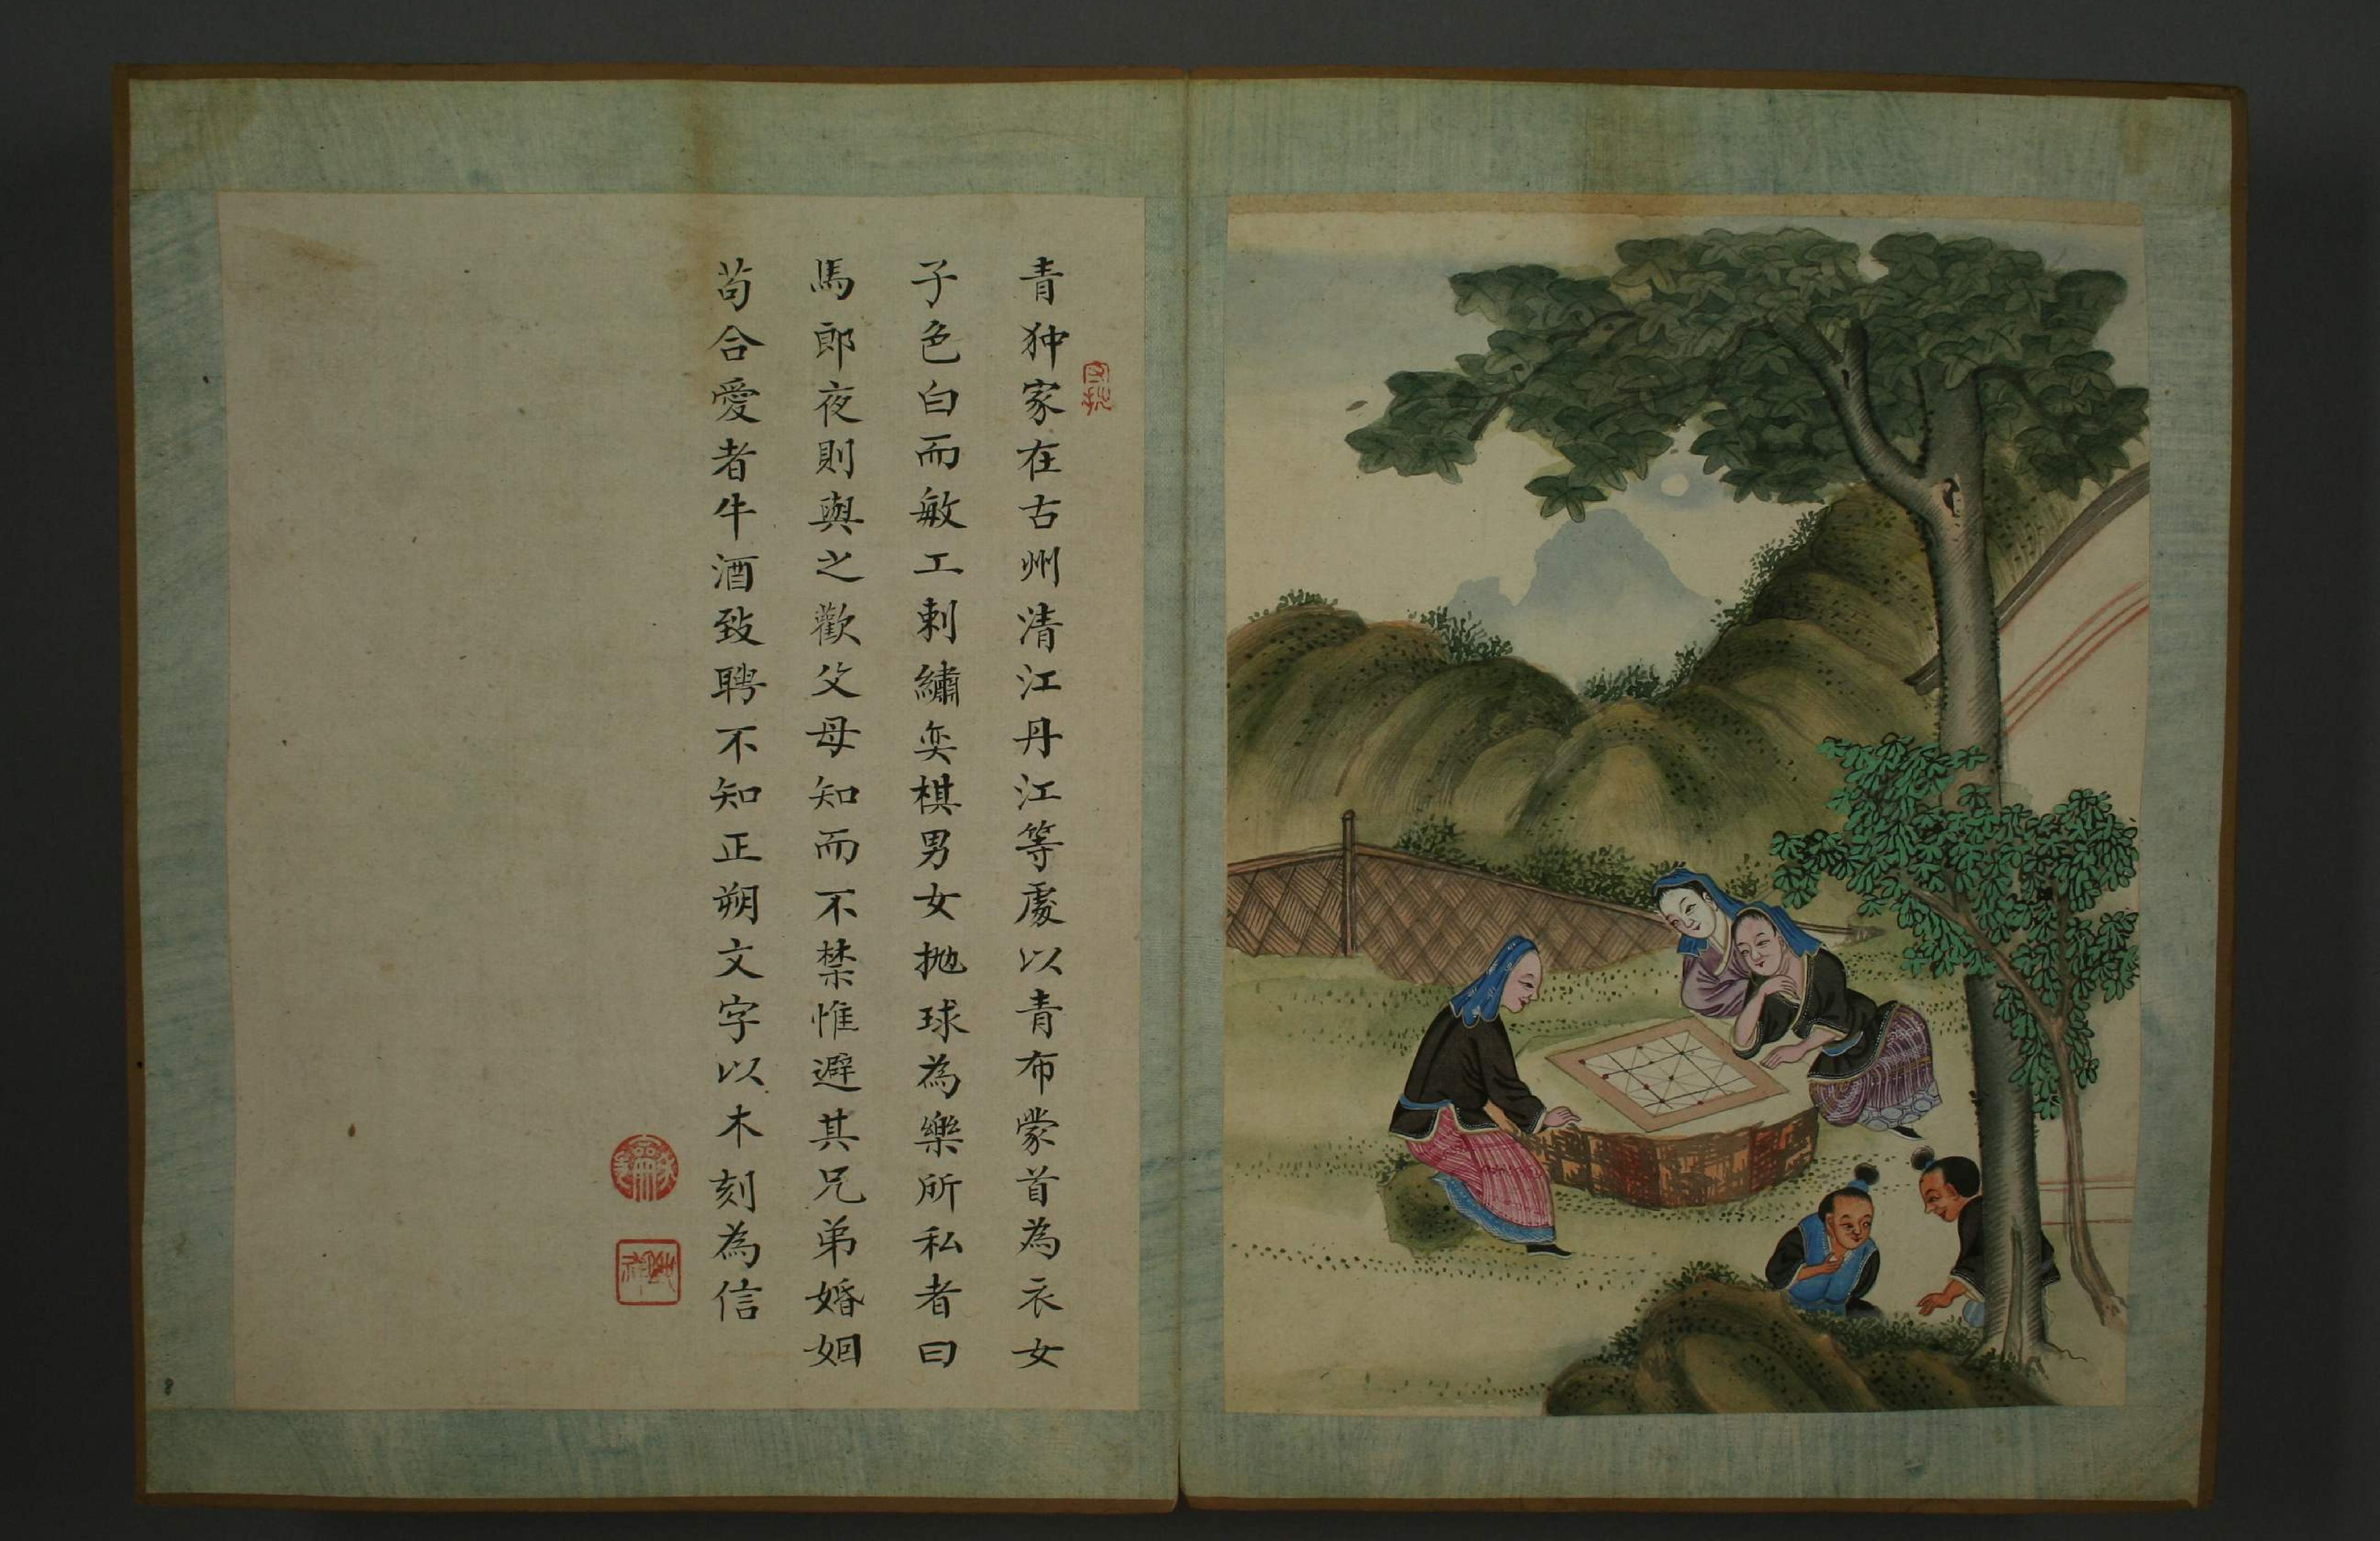 青狆家在古州清江丹江等處以青布蒙首為衣女
子色白而敏工刺繡奕棋男女拋球為樂所私者曰
馬郎夜則與之歡父母知而不禁惟避其兄弟婚姻
苟合愛者牛酒致聘不知正朔文字以木刻為信